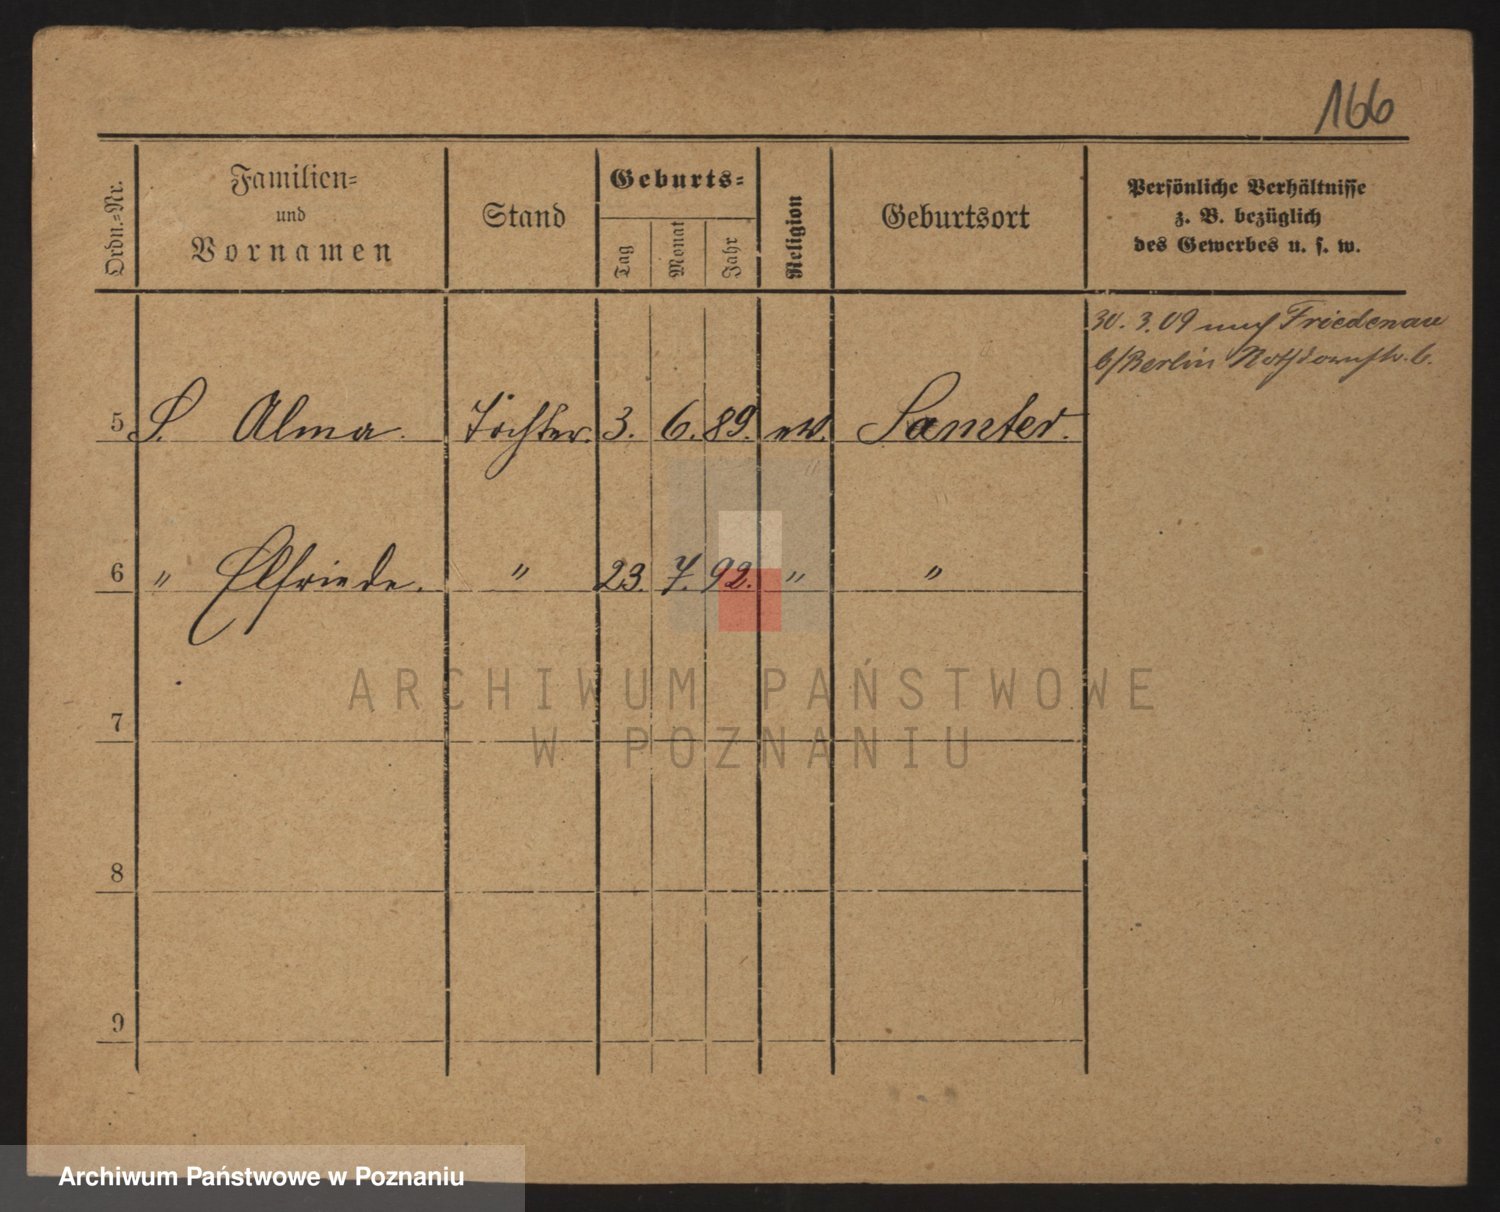 166
Ordn.-Nr.
Familien-
und
Vornamen
Stand
Geburts-
Tag
Monat
Jahr
Religion
Geburtsort
Persönliche Verhältnisse
z. B. bezüglich
des Gewerbes u. s. w.
30. 3. 09 nach Friedenau
b/Berlin
5 S. Alma. Tochter. 3. 6. 89. ev. Samter.
6 " Elfriede. " 23. 7. 92. " "
7
8
9
ARCHIWUM PAŃSTWOWE
W POZNANIU
Archiwum Państwowe w Poznaniu